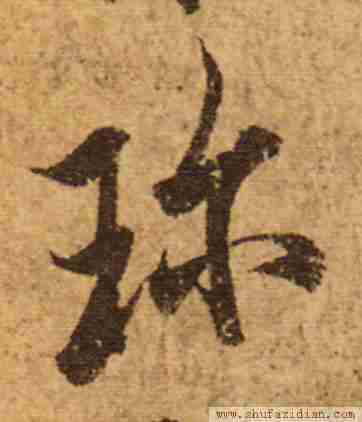 珎
www.shufazidian.com